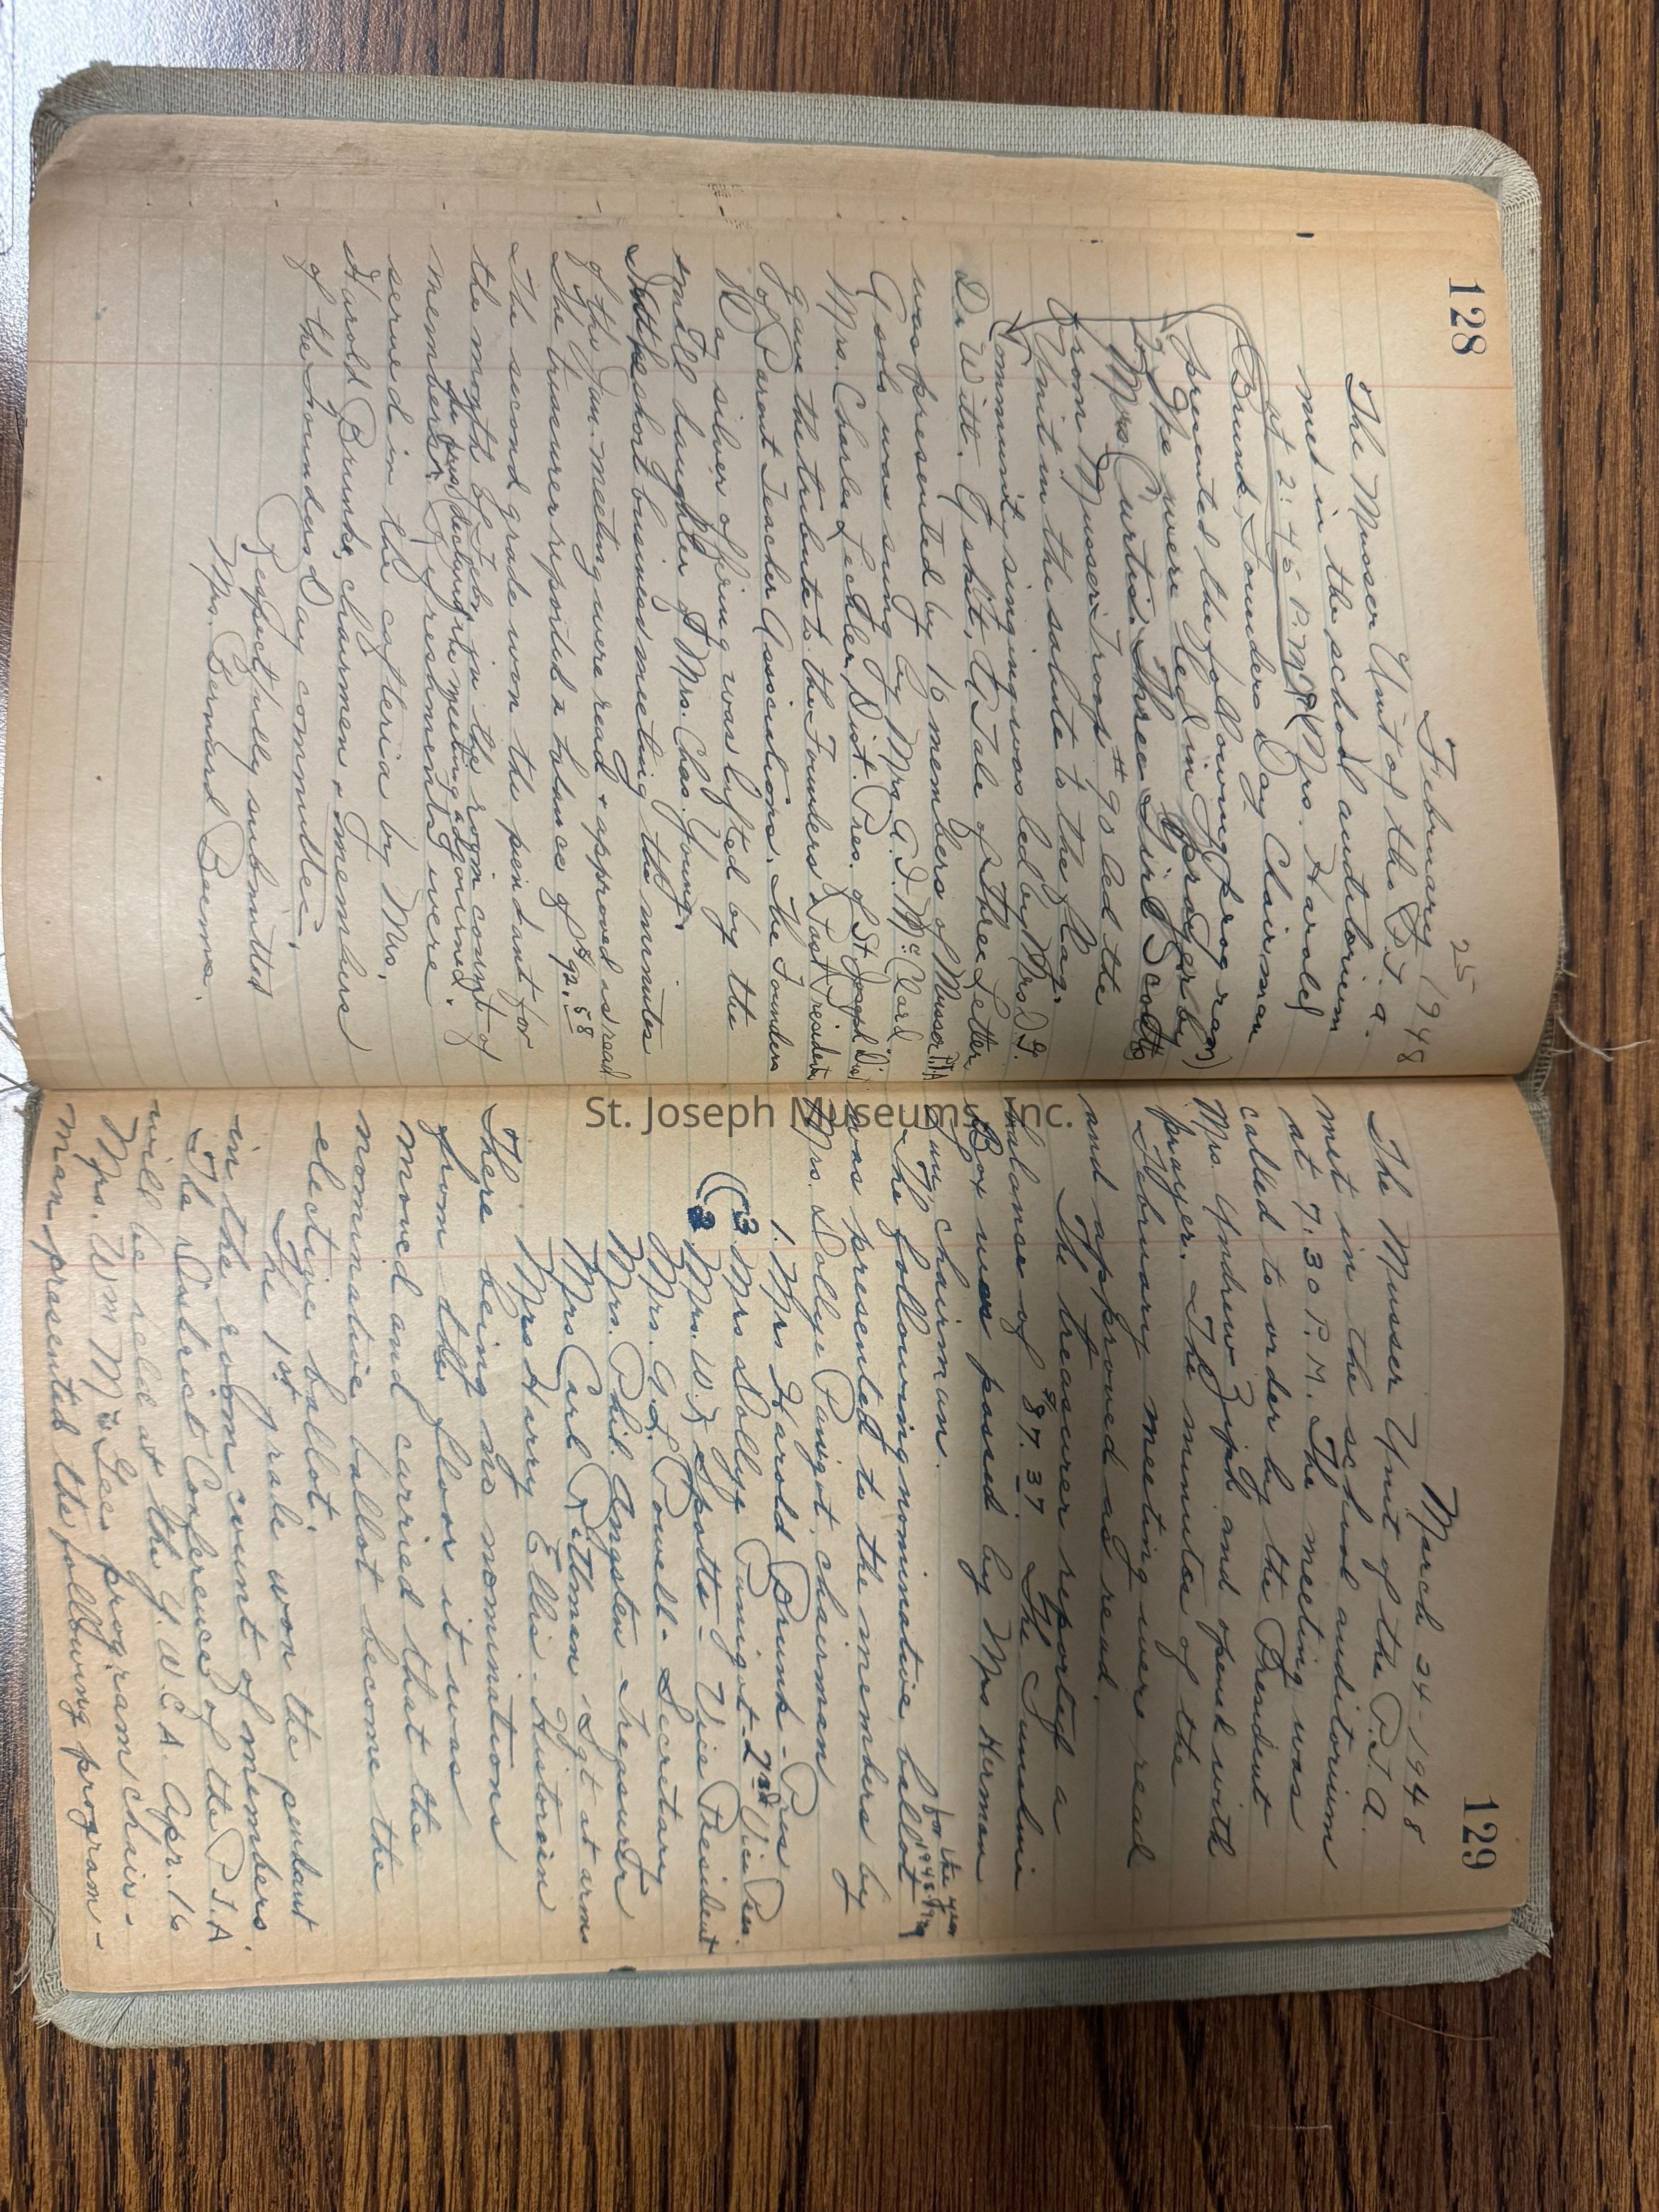 128
February 25 1948
The Musser Unit of the P.T.A.
met in the school auditorium
at 2:45 P.M. (Mrs. Harold
Brunk, Founders Day Chairman
presented the following program)
We were led in prayer by
Mrs Curtis. Three Girl Scouts
from Musser Troop #90 led the
Unit in the salute to the flag.
Community singing was led by Mrs D. G.
De Witt. A skit, A Tale of Three Letters
was presented by 16 members of Musser P.T.A
A solo was sung by Mrs. A. D. McClard
Mrs. Charles Lechler, Dist. Pres. of St Joseph Dist
gave the tribute to the Founders & Past Presidents
of Parent Teacher Associations. The Founders
Day silver offering was lifted by the
small daughter of Mrs. Chas. Young.
In the short business meeting the minutes
of the Jan. meeting were read & approved as read
The treasurer reported a balance of $92.58
The second grade won the pendant for
the month of Feb. in the room count of
the meeting adjourned.
members. Refreshments were
served in the cafteria by Mrs.
Harold Brunk, chairmen & members
of the Founders Day committee.
Respectfully submitted
Mrs. Bernard Beema.
129
March 24-1948
The Musser Unit of the P.T.A.
met in the school auditorium
at 7:30 P.M. The meeting was
called to order by the President
Mrs. Andrew Ziph and opened with
prayer. The minutes of the
February meeting were read
and approved as read.
The treasurer reported a
balance of $87.37 The Sunshine
Box was passed by Mrs Herman
Lung, chairman.
for the year
The following nominative ballot 1948-1949
was presented to the members by
Mrs. Dollye Panigot, chairman
1. Mrs Harold Brunk - Pres
(3 Mrs Dollye Panigot - 2nd Vice Pres.
(2 Mrs. W. L Spotts - Vice President
Mrs. A. L. Powell - Secretary
Mrs. Phil. Angsten - Treasurer
Mrs Carl Ritman - Sgt at arms
Mrs Harry Ellis - Historian
There being no nominations
from the floor it was
moved and carried that the
nominative ballot become the
elective ballot.
The 1st grade won the pendant
in the room count of members.
The District Conference of the P.T.A
will be held at the Y.W.C.A. Apr. 16
Mrs. Wm McGee program chair-
man presented the following program -
St. Joseph Museums, Inc.